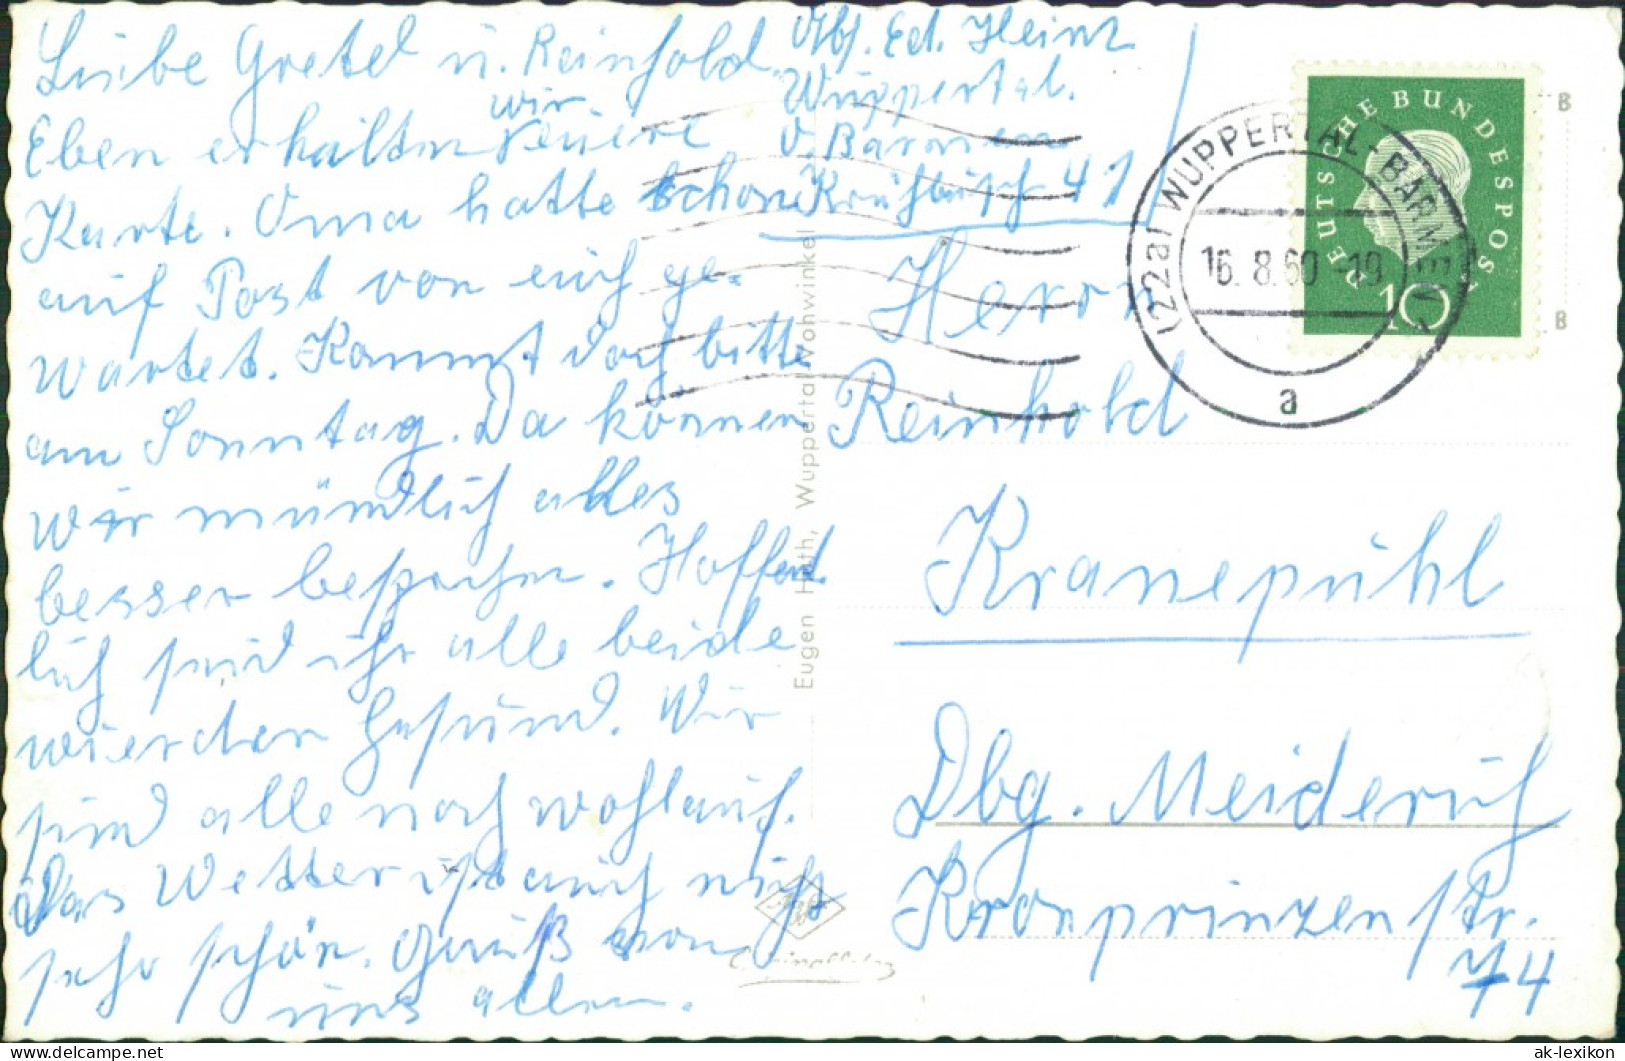 Liebe Gretel u. Reinhold.
Eben erhalten wir Euere
Karte. Oma hatte schon
auf Post von euch ge-
wartet. Kommt doch bitte
am Sonntag. Da können
wir mündlich alles
besser besprechen. Hoffent
lich seid ihr alle beide
wierder Gesund. Wir
sind alle noch wohlauf.
Das Wetter ist auch nicht
sehr schön. Gruß von
uns allen.
Abs. Ed. Heinz
Wuppertal.
Barmen
41
Eugen Hoth, Wuppertal-Vohwinkel
Herrn
Reinhold
Kranepühl
Dbg. Meiderich
Kronprinzenstr.
74
DEUTSCHE BUNDESPOST
10
(22a) WUPPERTAL-BARMEN 1
16.8.60-19
a
B
B
ak-lexikon.com